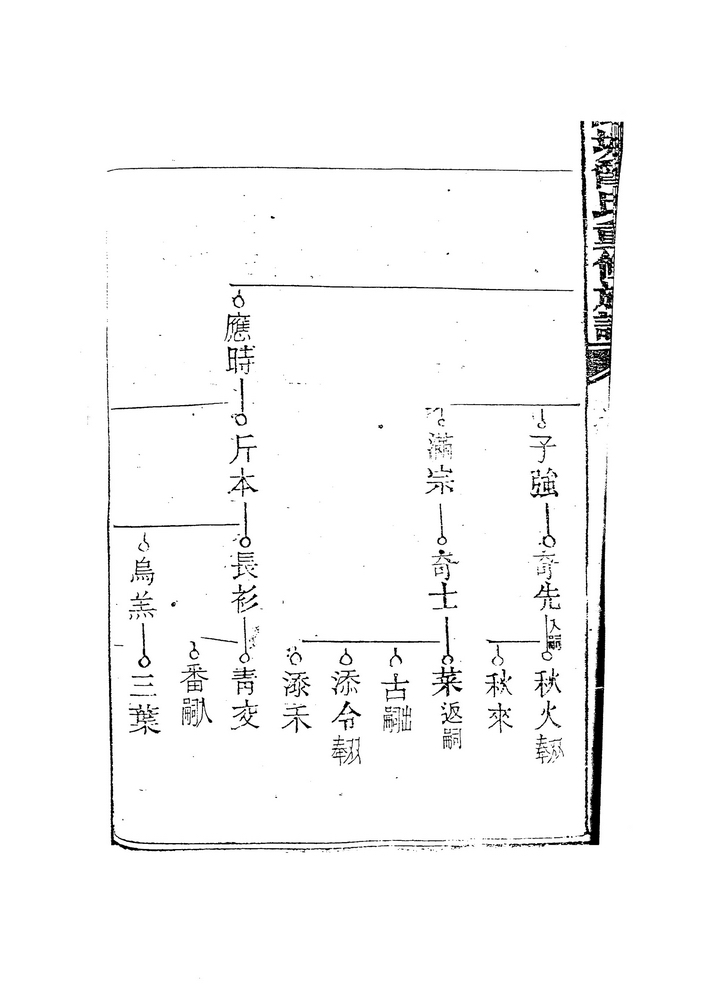 氏重修族譜
子強
奇先
入嗣
秋火
秋來
滿崇
奇士
菜
返嗣
古
出嗣
添令
添禾
應時
斤本
長衫
青交
番
入嗣
烏羔
三葉